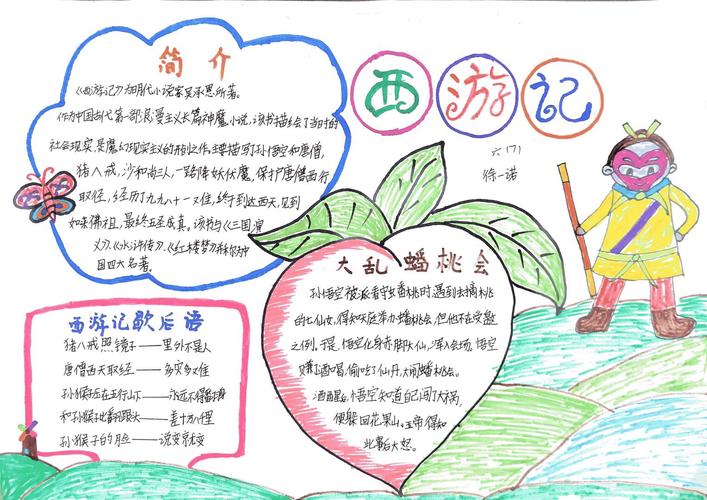 西游记
六(7)
徐一诺
简介
《西游记》为明代小说家吴承恩所著。
作为中国古代第一部浪漫主义长篇神魔小说,该书描绘了当时的
社会现实,是魔幻现实主义的开创作。主要描写了孙悟空和唐僧,
猪八戒,沙和尚三人,一路降妖伏魔,保护唐僧西行
取经,经历九九八十一难,终于到达西天,见到
如来佛祖,最终五圣成真。该书与《三国演
义》《水浒传》《红楼梦》并称为中
国四大名著。
大乱蟠桃会
孙悟空被派看守蟠桃时,遇到去摘桃
的七仙女,得知天庭举办蟠桃会,但他不在受邀
之列。于是,悟空化身赤脚大仙,混入会场,悟空
又喝,偷吃了仙丹,大闹蟠桃会。
酒醒后,悟空知道自己闯了大祸,
便躲回花果山。玉帝得知
此事后大怒。
西游记歇后语
猪八戒照镜子——里外不是人
唐僧西天取经——多灾多难
孙猴压在五行山下——永远不得翻身
和孙猴比翻跟头——差十万八千里
孙猴子的脸——说变就变